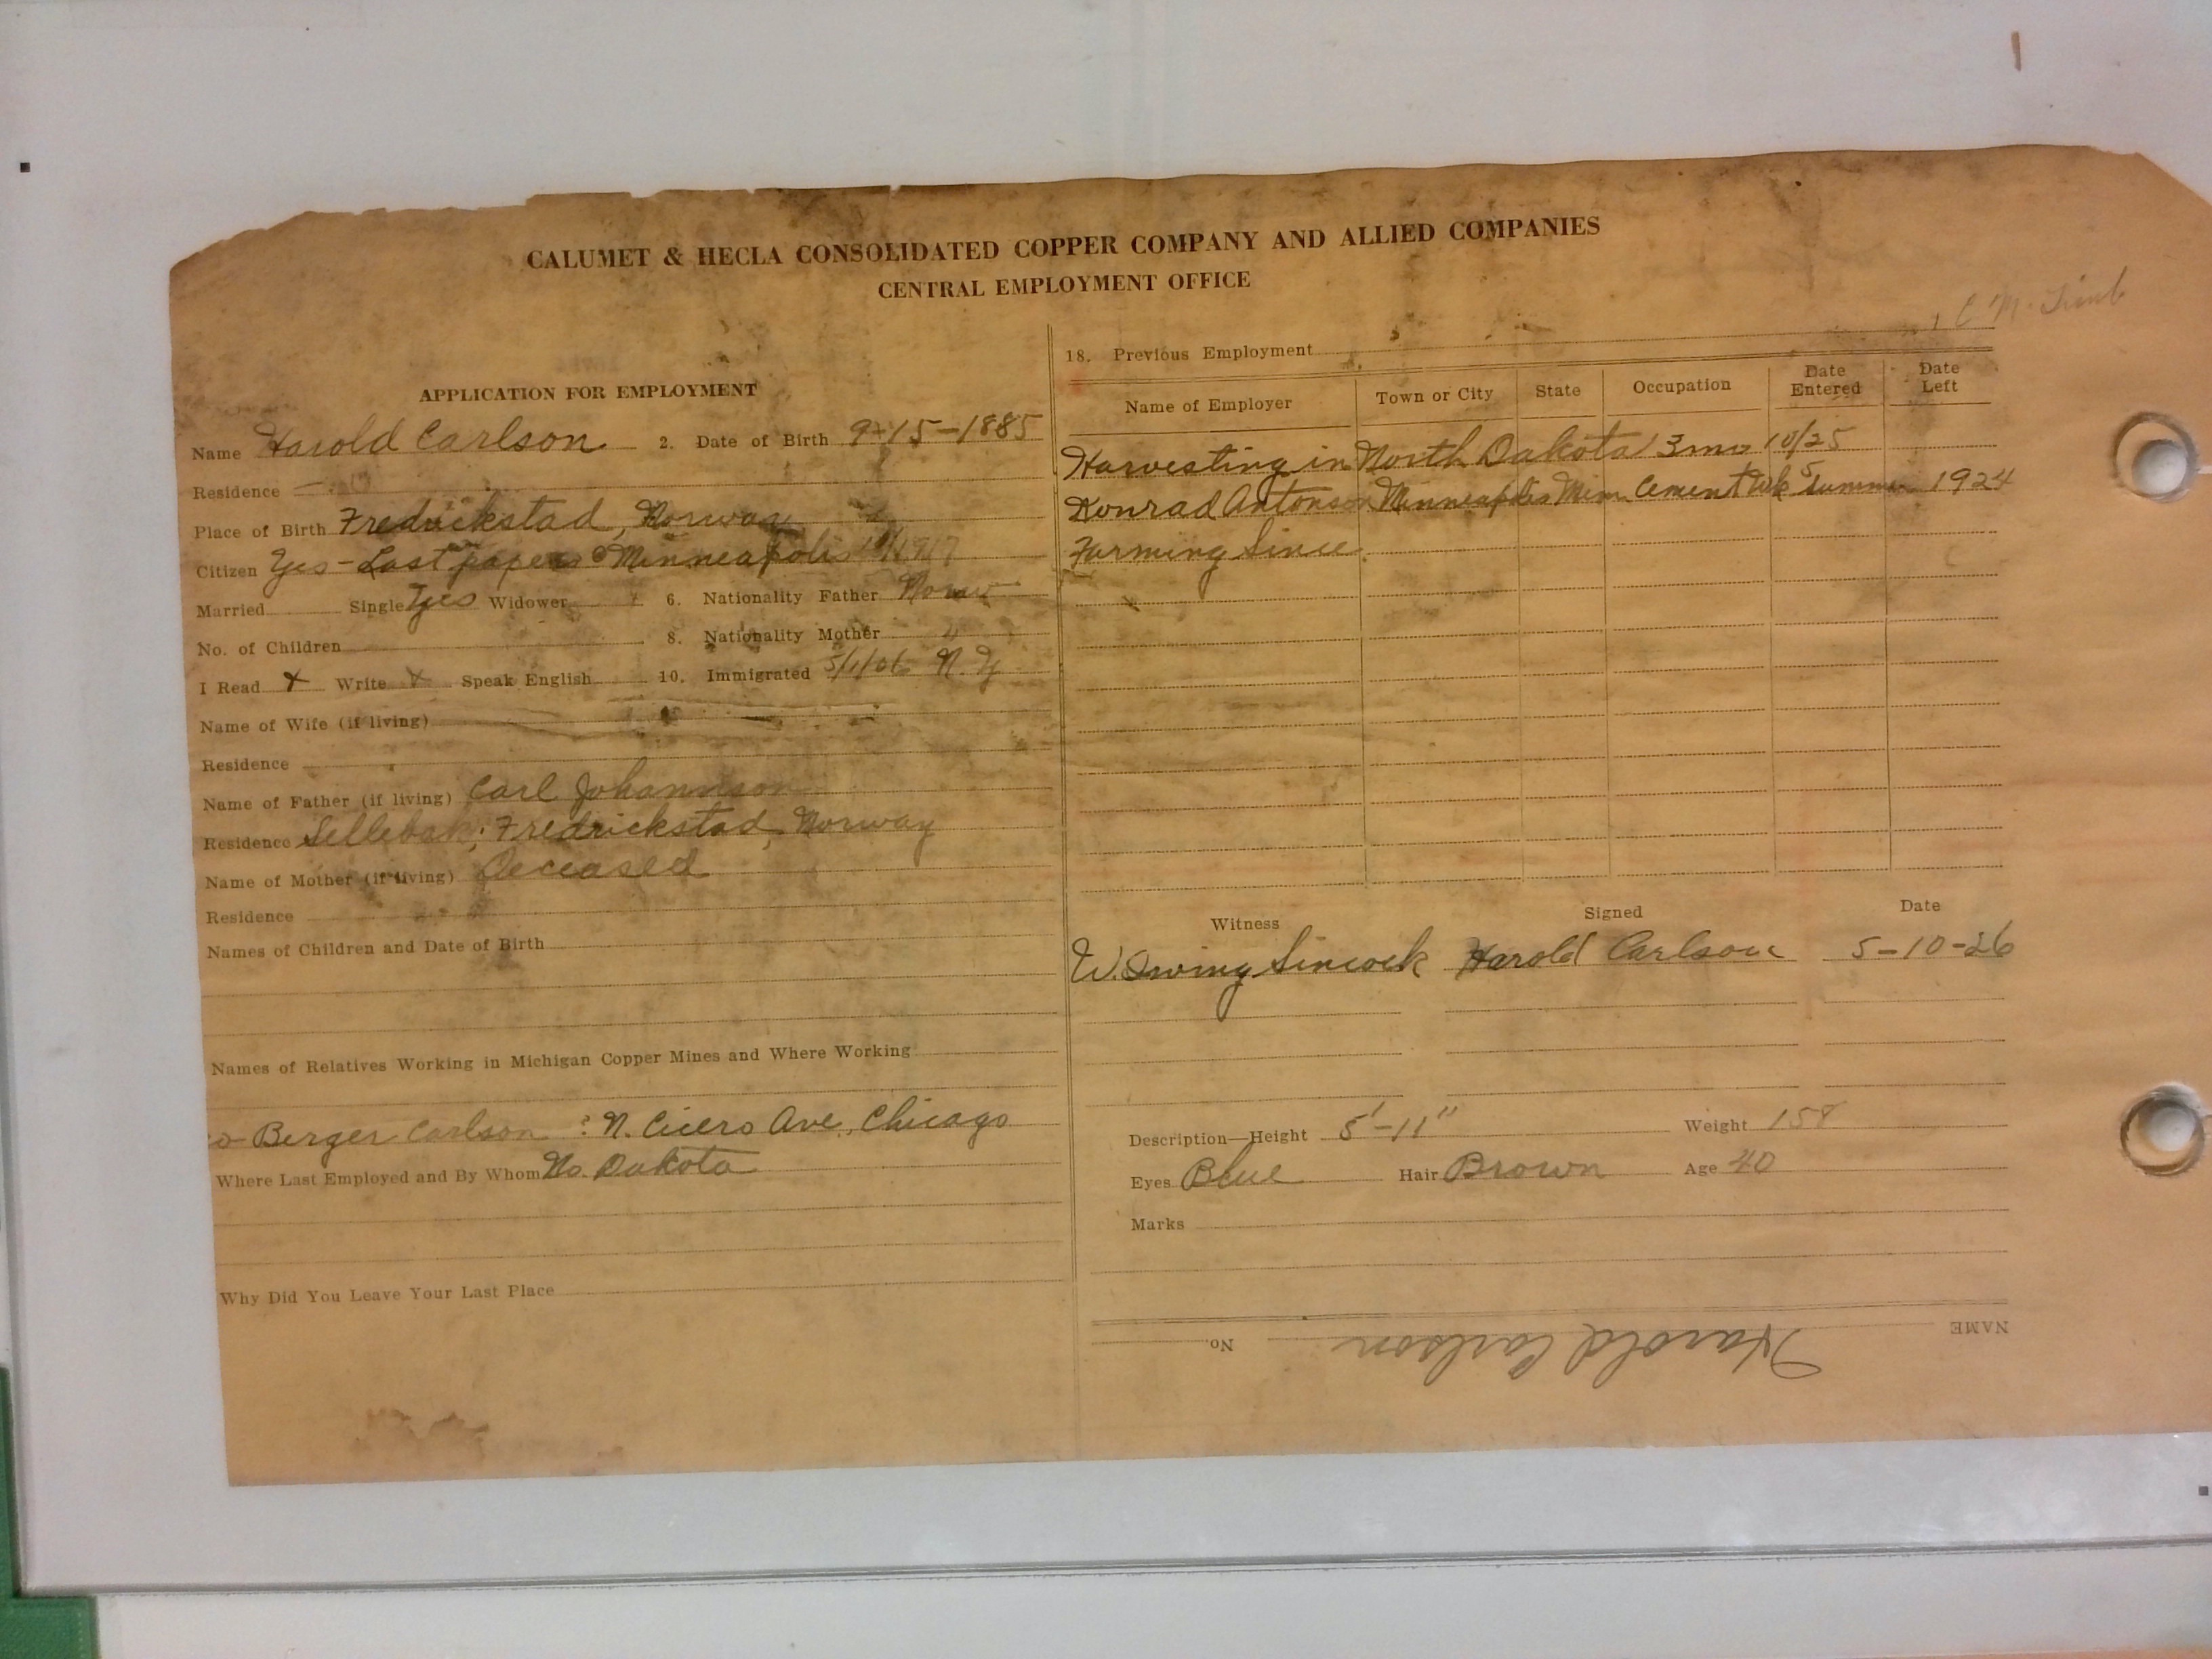 CALUMET & HECLA CONSOLIDATED COPPER COMPANY AND ALLIED COMPANIES
CENTRAL EMPLOYMENT OFFICE
APPLICATION FOR EMPLOYMENT
Name Harold Carlson 2. Date of Birth 9-15-1885
Residence —
Place of Birth Fredrickstad, Norway
Citizen Yes - Last papers Minneapolis 1917
Married Single Yes Widower 6. Nationality Father Norw
No. of Children 8. Nationality Mother "
I Read X Write X Speak English 10. Immigrated 5/1/06 N.Y
Name of Wife (if living)
Residence
Name of Father (if living) Carl Johannson
Residence Sellebak; Fredrickstad, Norway
Name of Mother (if living) Deceased
Residence
Names of Children and Date of Birth
Names of Relatives Working in Michigan Copper Mines and Where Working
Berger Carlson N. Cicero Ave, Chicago
Where Last Employed and By Whom No. Dakota
Why Did You Leave Your Last Place
C M.
18. Previous Employment
Name of Employer Town or City State Occupation Date Entered Date Left
Harvesting in North Dakota 3 mos 10/25
Konrad Antonson Minneapolis Minn Cement Wk Summer 1924
Farming Since
Witness Signed Date
W. Irwing Sincock Harold Carlson 5-10-26
Description—Height 5'-11" Weight 158
Eyes Blue Hair Brown Age 40
Marks
NAME Harold Carlson No.